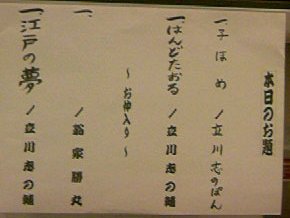 本日のお題
一、子ほめ／立川志のぽん
一、はんどたおる／立川志の輔
～お仲入り～
一、／翁家勝丸
一、江戸の夢／立川志の輔